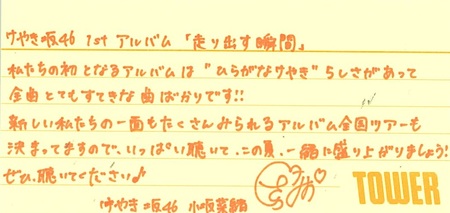 けやき坂46 1stアルバム「走り出す瞬間」
私たちの初となるアルバムは"ひらがなけやき"らしさがあって
全曲とてもすてきな曲ばかりです!!
新しい私たちの一面もたくさんみられるアルバム全国ツアーも
決まってますので、いっぱい聴いて、この夏、一緒に盛り上がりましょう!
ぜひ、聴いてください♪
けやき坂46 小坂菜緒
TOWER